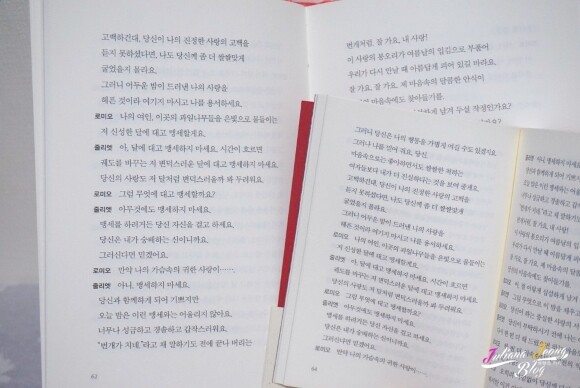 고백하건대, 당신이 나의 진정한 사랑의 고백을
듣지 못하셨다면, 나도 당신께 좀 더 쌀쌀맞게
굴었을지 몰라요.
그러니 어두운 밤이 드러낸 나의 사랑을
헤픈 것이라 여기지 마시고 나를 용서하세요.
로미오 나의 여인, 이곳의 과일나무들을 은빛으로 물들이는
저 신성한 달에 대고 맹세할게요.
줄리엣 아, 달에 대고 맹세하지 마세요. 시간이 흐르면
궤도를 바꾸는 저 변덕스러운 달에 대고 맹세하지 마세요.
당신의 사랑도 저 달처럼 변덕스러울까 봐 두려워요.
로미오 그럼 무엇에 대고 맹세할까요?
줄리엣 아무것에도 맹세하지 마세요.
맹세를 하려거든 당신 자신을 걸고 하세요.
당신은 내가 숭배하는 신이니까요.
그러신다면 믿겠어요.
로미오 만약 나의 가슴속의 귀한 사랑이……
줄리엣 아니, 맹세하지 마세요.
당신과 함께하게 되어 기쁘지만
오늘 밤은 이런 맹세하는 어울리지 않아요.
너무나 성급하고 경솔하고 갑작스러워요.
“번개가 치네.”라고 채 말하기도 전에 끝나 버리는
62
번개처럼. 잘 가요, 내 사랑!
이 사랑의 봉오리가 여름날의 입김으로 부풀어
우리가 다시 만날 때 아름답게 피어 있길 바라요.
잘 가요, 잘 가요. 제 마음속의 달콤한 안식이
마음에도 찾아들기를.
남겨 두실 작정인가요?
그러니 당신은 나의 행동을 가볍게 여길 수도 있겠지요.
그러나 나를 믿어 줘요, 당신.
마음속으로는 좋아하면서도 쌀쌀한 척하는
여자들보다 내가 더 진실하다는 것을 보여 줄게요.
고백하건대, 당신이 나의 진정한 사랑의 고백을
듣지 못하셨다면, 나도 당신께 좀 더 쌀쌀맞게
굴었을지 몰라요.
그러니 어두운 밤이 드러낸 나의 사랑을
헤픈 것이라 여기지 마시고 나를 용서하세요.
로미오 나의 여인, 이곳의 과일나무들을 은빛으로 물들이는
저 신성한 달에 대고 맹세할게요.
줄리엣 아, 달에 대고 맹세하지 마세요. 시간이 흐르면
궤도를 바꾸는 저 변덕스러운 달에 대고 맹세하지 마세요.
당신의 사랑도 저 달처럼 변덕스러울까 봐 두려워요.
로미오 그럼 무엇에 대고 맹세할까요?
줄리엣 아무것에도 맹세하지 마세요.
맹세를 하려거든 당신 자신을 걸고 하세요.
당신은 내가 숭배하는 신이니까요.
그러신다면 믿겠어요.
로미오 만약 나의 가슴속의 귀한 사랑이……
64
Juliana Jeong
Blog